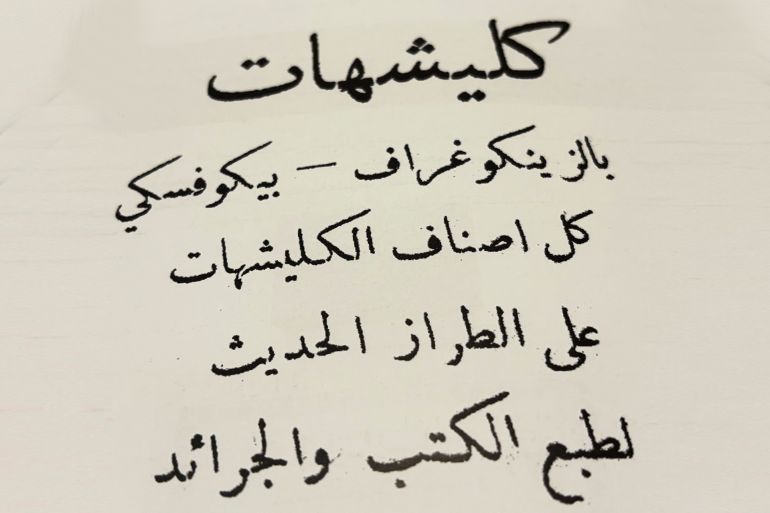 كليشهات
بالزينكوغراف — بيكوفسكي
كل اصناف الكليشهات
على الطراز الحديث
لطبع الكتب والجرائد